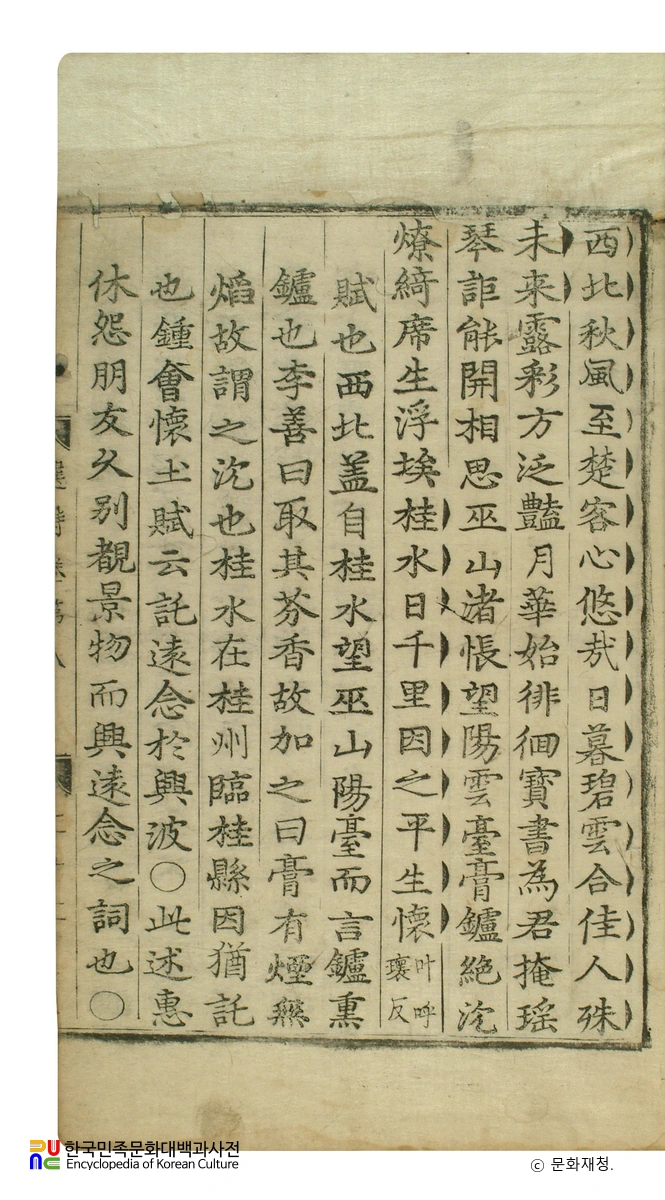 西北秋風至楚客心悠㦲日暮碧雲合佳人殊
未來露彩方泛豔月華始徘徊寶書為君掩瑤
琴詎能開相思巫山渚悵望陽雲臺膏鑪絶沉
燎綺席生浮埃桂水日千里因之平生懷叶呼瓌反
賦也西北盖自桂水望巫山陽臺而言鑪熏
鑪也李善曰取其芬香故加之曰膏有煙無
焰故謂之沉也桂水在桂州臨桂縣因猶託
也鍾會懷土賦云託遠念於興波○此述惠
休怨朋友久别覩景物而興遠念之詞也○
選詩 卷第八
한국민족문화대백과사전
Encyclopedia of Korean Culture
ⓒ 문화재청.